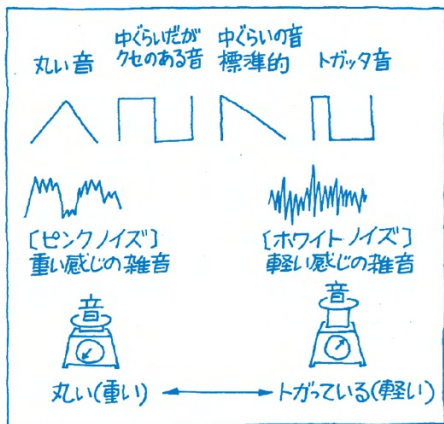 丸い音
中ぐらいだが
クセのある音
中ぐらいの音
標準的
トガッタ音
[ピンクノイズ]
重い感じの雑音
[ホワイトノイズ]
軽い感じの雑音
音
音
丸い(重い) ←→ トガっている(軽い)